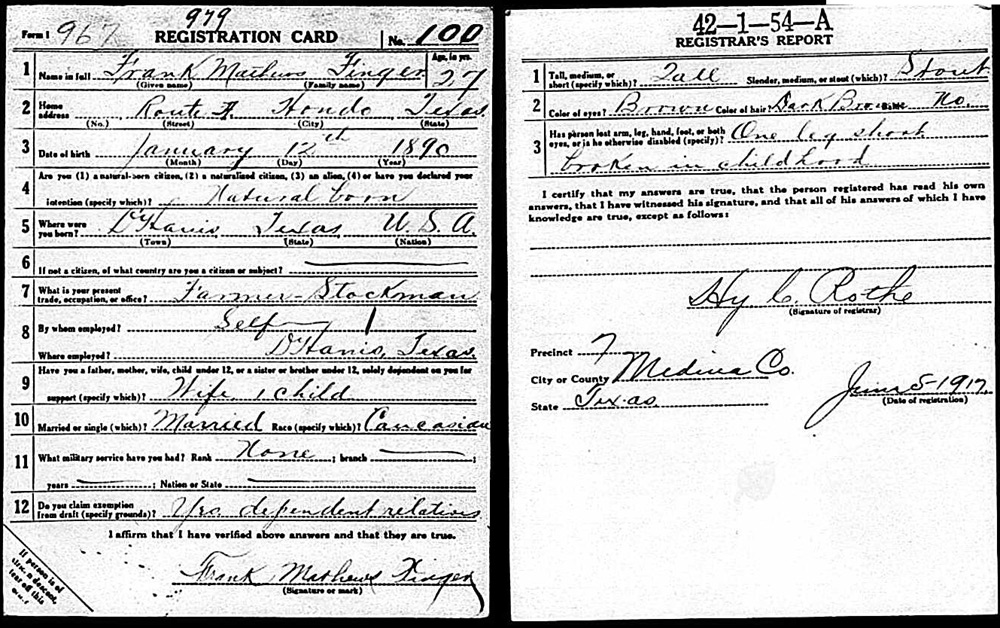 979
Form 1 967 REGISTRATION CARD No. 100
1 Name in full Frank Mathews Finger Age, in yrs. 27
(Given name) (Family name)
2 Home address Route A. Hondo Texas
(No.) (Street) (City) (State)
3 Date of birth January 12th 1890
(Month) (Day) (Year)
4 Are you (1) a natural-born citizen, (2) a naturalized citizen, (3) an alien, (4) or have you declared your
intention (specify which)? Natural born
5 Where were you born? D'Hanis Texas U.S.A.
(Town) (State) (Nation)
6 If not a citizen, of what country are you a citizen or subject?
7 What is your present trade, occupation, or office? Farmer-Stockman
8 By whom employed? Self
Where employed? D'Hanis, Texas
9 Have you a father, mother, wife, child under 12, or a sister or brother under 12, solely dependent on you for
support (specify which)? Wife 1 child
10 Married or single (which)? Married Race (specify which)? Caucasian
11 What military service have you had? Rank None ; branch ;
years ; Nation or State
12 Do you claim exemption from draft (specify grounds)? Yes dependent relatives
I affirm that I have verified above answers and that they are true.
Frank Mathews Finger
(Signature or mark)
If person is of
tear off this
42-1-54-A
REGISTRAR'S REPORT
1 Tall, medium, or short (specify which)? Tall Slender, medium, or stout (which)? Stout
2 Color of eyes? Brown Color of hair? Dark Brown No.
3 Has person lost arm, leg, hand, foot, or both eyes, or is he otherwise disabled (specify)? One leg short
broken in childhood
I certify that my answers are true, that the person registered has read his own
answers, that I have witnessed his signature, and that all of his answers of which I have
knowledge are true, except as follows:
Hy C. Rothe
(Signature of registrar)
Precinct 7
City or County Medina Co.
State Texas
June 5-1917
(Date of registration)